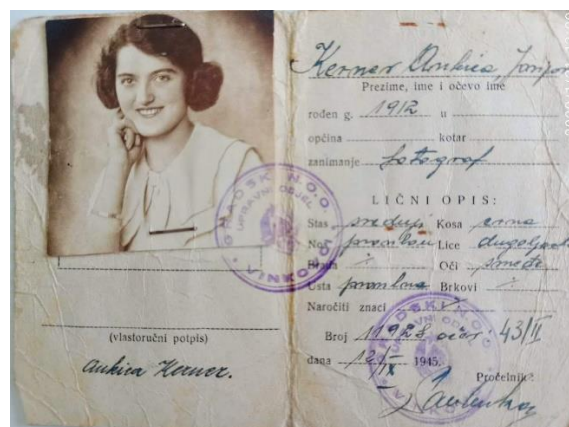 GRADSKI N.O.O. VINKOVCI
UPRAVNI ODJEL
(vlastoručni potpis)
Ankica Kerner.
Kerner Ankica,
Prezime, ime i očevo ime
rođen g. 1912 u
općina kotar
zanimanje fotograf
LIČNI OPIS:
Stas srednji Kosa crna
Nos pravilan Lice
Brada Oči smeđe
Usta pravilna Brkovi
Naročiti znaci
Broj 11928 43/II
dana 12/IX 1945.
Pročelnik: